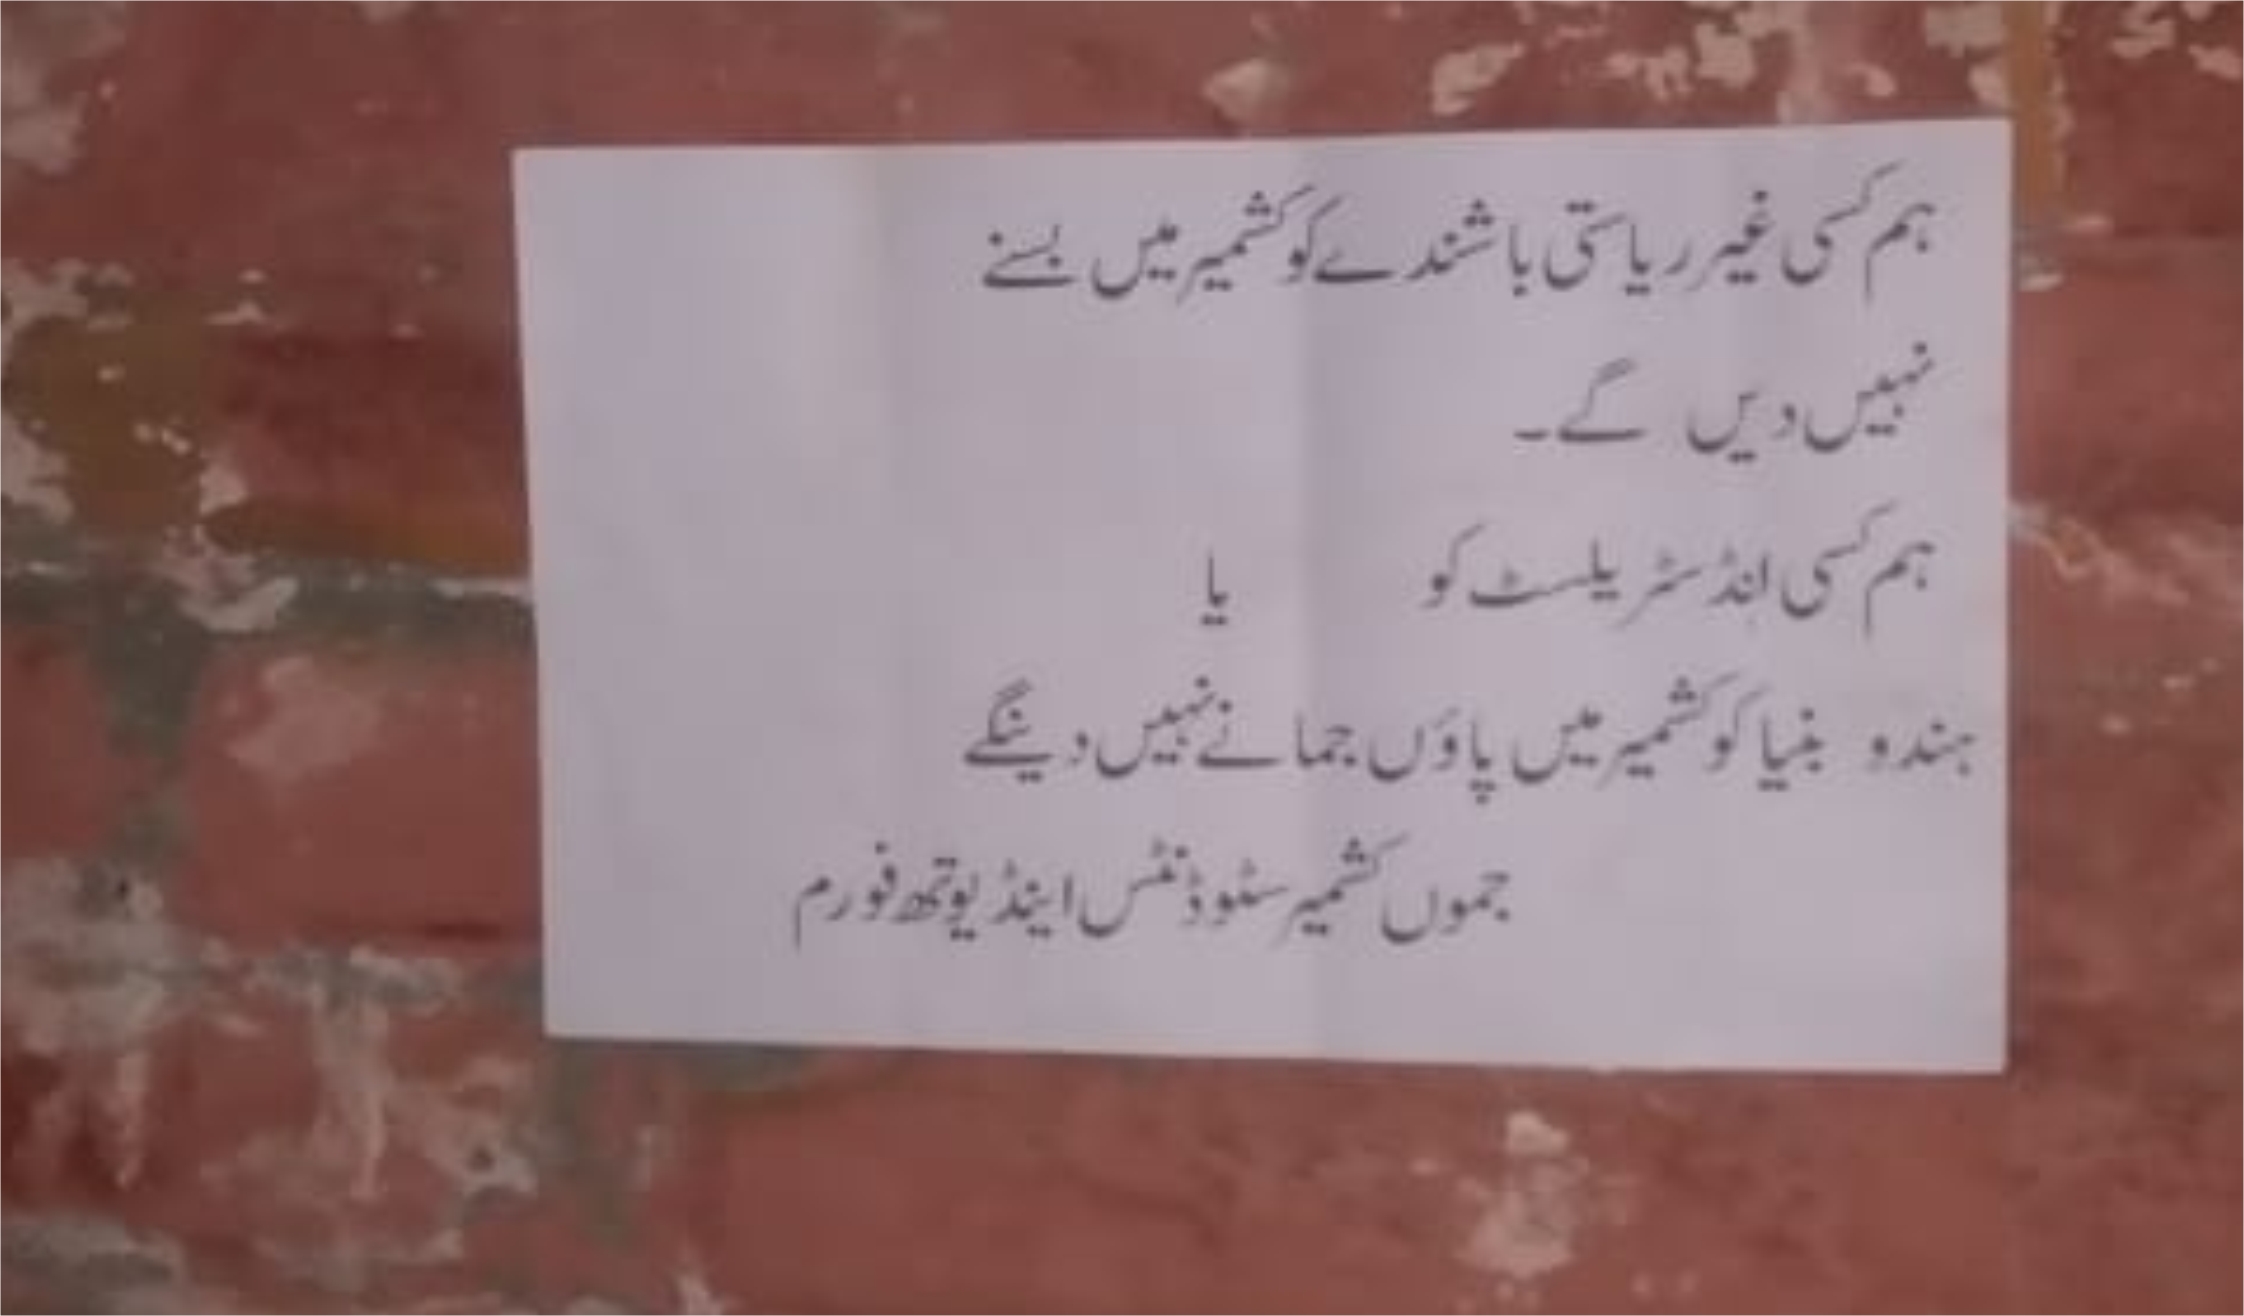 ہم کسی غیر ریاستی باشندے کو کشمیر میں بسنے
نہیں دیں گے۔
ہم کسی انڈسٹریلسٹ کو یا
ہندو بنیا کو کشمیر میں پاؤں جمانے نہیں دینگے
جموں کشمیر سٹوڈنٹس اینڈ یوتھ فورم